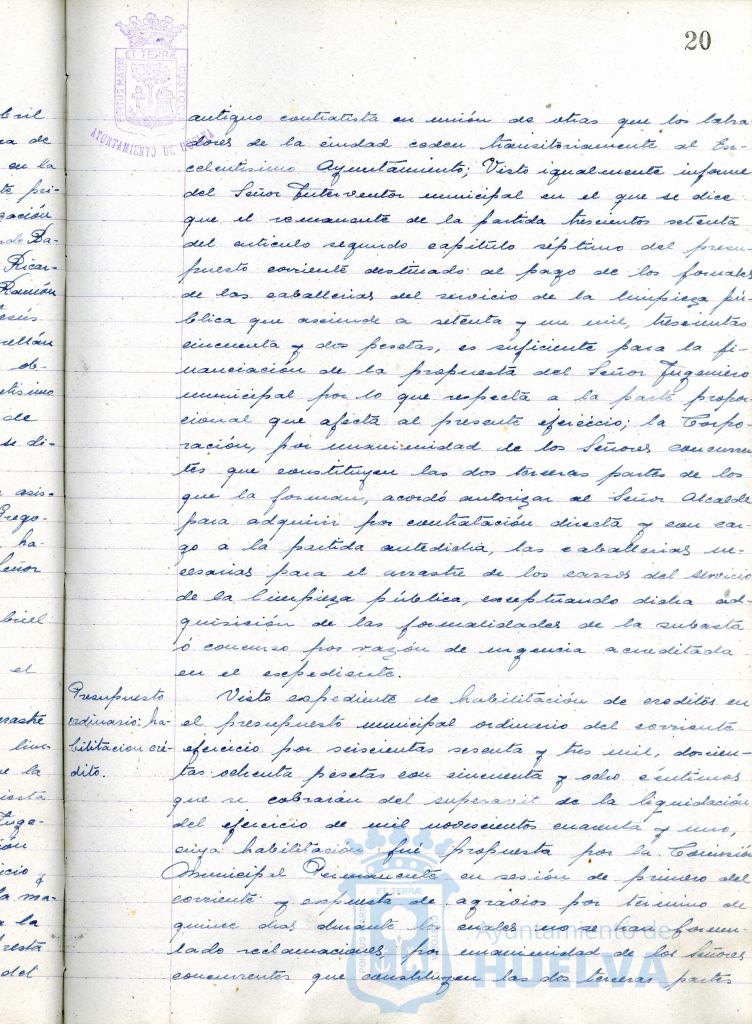 20
PORTUS MARIS ET TERRÆ CUSTODIA
AYUNTAMIENTO DE HUELVA
antiguo contratista en unión de otras que los labra
dores de la ciudad ceden transitoriamente al Ex-
celentísimo Ayuntamiento; Visto igualmente informe
del Señor Interventor municipal en el que se dice
que el remanente de la partida trescientos setenta
del articulo segundo capitulo séptimo del presu
puesto corriente destinado al pago de los jornales
de las caballerias del servicio de la limpieza pú-
blica que asciende a setenta y un mil, trescientas
cincuenta y dos pesetas, es suficiente para la fi-
nanciación de la propuesta del Señor Ingeniero
municipal por lo que respecta a la parte propor
cional que afecta al presente ejercicio; la Corpo-
ración, por unanimidad de los Señores concurren
tes que constituyen las dos terceras partes de los
que la forman, acordó autorizar al Señor Alcalde
para adquirir por contratación directa y con car-
go a la partida antedicha, las caballerias ne-
cesarias para el arrastre de los carros del servicio
de la limpieza pública, exceptuando dicha ad-
quisición de las formalidades de la subasta
ó concurso por razón de urgencia acreditada
en el expediente.
Presupuesto
ordinario: ha-
bilitacion cré-
dito.
Visto expediente de habilitación de creditos en
el presupuesto municipal ordinario del corriente
ejercicio por seiscientas sesenta y tres mil, doscien-
tas ochenta pesetas con cincuenta y ocho céntimos
que se cobrarán del superavit de la liquidación
del ejercicio de mil novecientos cuarenta y uno,
cuya habilitación fué propuesta por la Comisión
Municipal Permanente en sesión de primero del
corriente y expuesta de agravios por termino de
quince dias durante los cuales no se han formu-
lado reclamaciones, por unanimidad de los Señores
concurrentes que constituyen las dos terceras partes
Ayuntamiento de
HUELVA